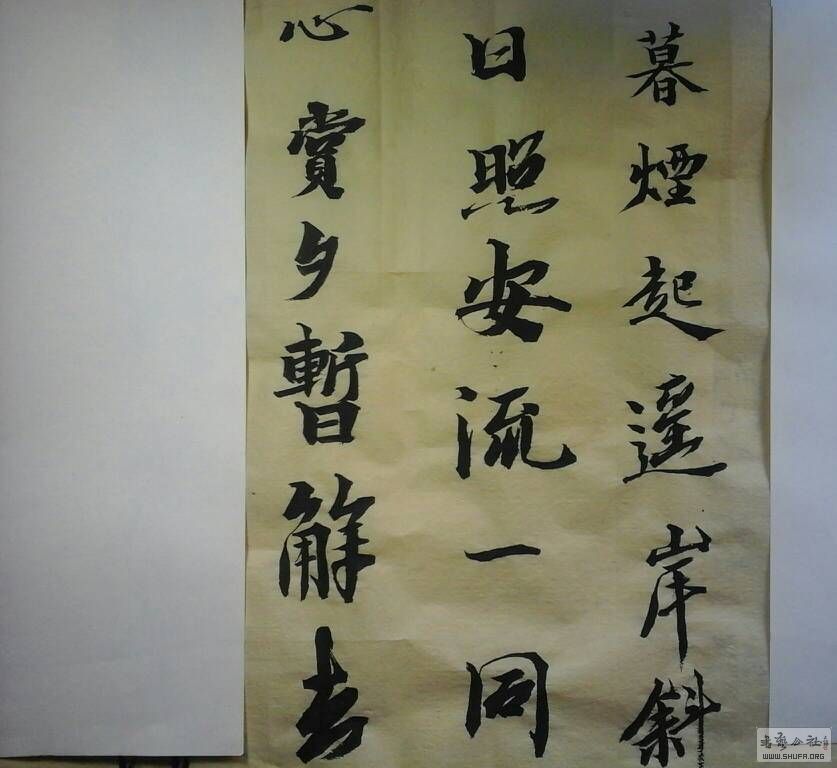 暮煙起遥岸斜
日照安流一同
心賞夕暫解去
書藝公社
WWW.SHUFA.ORG